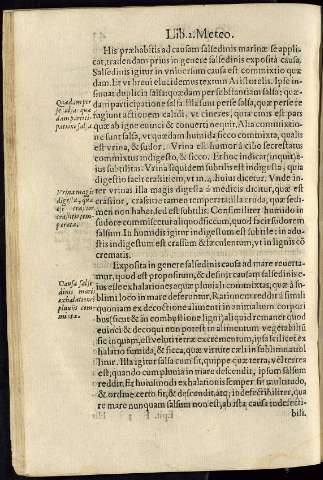 Lib. 2. Meteo.
His præhabitis ad causam salsedinis marinæ se appli
cat, tradendam prius in genere salsedinis exposita causa.
Salsedinis igitur in vniuersum causa est commixtio quæ
dam. Id vt breui elucidemus textum Aristotelis. Ipse in-
sinuat duplicia salsa: quædam per substantiam salsa: quæ-
dam participatione salsa. Illa sunt per se salsa, quæ per se re
fugiunt actionem calidi, vt cineres, quia omnis est pars
quæ ab igne euinci & conuerti nequit. Alia commixtio-
ne sunt salsa, vt quædam humida sicco commixta, qualis
est vrina, & sudor. Vrina est humor à cibo secrestatus
commixtus indigesto, & sicco. Et hoc indicat (inquit) a-
ius subtilitas. Vrina siquidem subtilis est indigesta, quia
digestio facit crassitiem, vt in huius dicetur. Vnde in-
ter vrinas illa magis digesta à medicis dicitur, quæ est
crassior, crassitie tamen temperata illa cruda, quæ sedi-
men non habet, sed est subtilis. Consimiliter humido in
sudore commiscetur aliquod siccum, quod facit sudorem
salsum. In humidis igitur indigestum est subtile: in adu-
stis indigestum est crassum & lutulentum, vt in lignis cō
crematis.
Quædam per
se salsa: quæ
dam partici
patione salsa,
Vrina magis
digesta, quæ
est crassior
crassitie tem-
perata.
Exposita in genere salsedinis causa ad mare reuerta-
mur, quod est propositum, & designat causam salsedinis e-
ius esse exhalationes: & quæ pluuiis commixtas, quæ à su-
blimi loco in mare deferantur. Rationem reddit à simili
quoniam ex decoctione alimenti in animalium corpori
bus, sicut & in combustione ligni, aliquid remanet quod
euinci & decoqui non potest in alimentum vegetabiliū
sic inquam, est veluti terræ excrementum, ipsa scilicet ex
halatio fumida, & sicca, quæ virtute caeli in sublimi attol
litur. Illa igitur salsa cum sit, quippe quæ terra, vel terrea
est, quando cum pluuia in mare descendit, ipsum salsum
reddit. Et huiusmodi exhalationis semper fit multitudo,
& ordine certo fit, & descendit, atq; indefectibiliter, qua
re mare nunquam salsum non est, ab ista causa indefecti-
bili.
Causa salse
dinis maris
exhalationes
pluuiis com-
mixta.